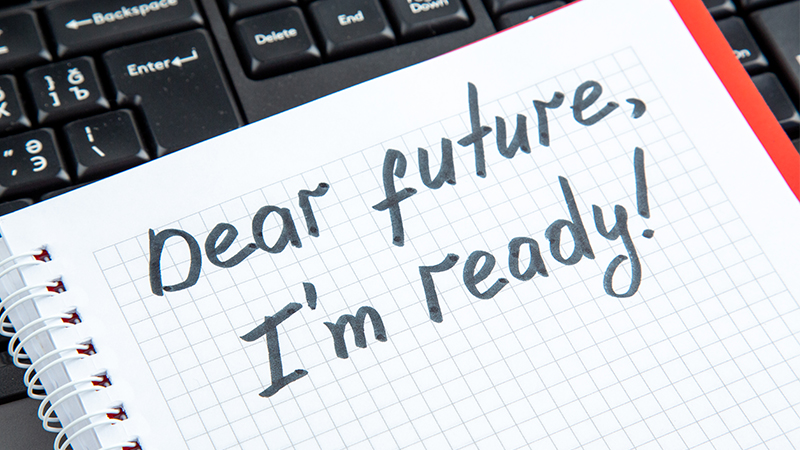 Backspace
Delete
End
Down
Enter
On
Dear future,
I'm ready!